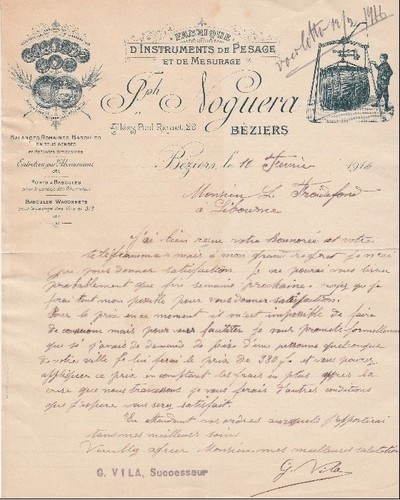 FABRIQUE
D'INSTRUMENTS DE PESAGE
ET DE MESURAGE
Jph Noguera
BÉZIERS
voir lettre 12/2 1916
BALANCES ROMAINES, BASCULES
EN TOUS GENRES
Entretien par Abonnement
PONTS A BASCULES
BASCULES WAGONNETS
Béziers, le 10 Février 1916
Monsieur L.
à Libourne
J'ai bien reçue votre honnorée et votre
télégramme mais à mon grand regret je n'ai
pas vous donner satisfaction. Je ne pourai vous livrer
probablement que fin semaine prochaine. soyez que je
ferai tout mon possible pour vous donner satisfaction.
Pour le prix en ce moment il m'est impossible de faire
de mais pour vous faciliter je vous promets formellement
que si j'avais de demande de faire d'une personne quelconque
de votre ville je lui ferai le prix de 280 f. et vous pouvez
appliquer ce prix en comptant les frais en plus après la
crise que nous traversons je vous ferais d'autres conditions
que j'espère vous serez satisfait.
En attendant vos ordres auxquels j'apporterai
tous mes meilleurs soins.
Veuillez agréer Monsieur mes meilleures salutations
G. VILA, Successeur
G. Vila